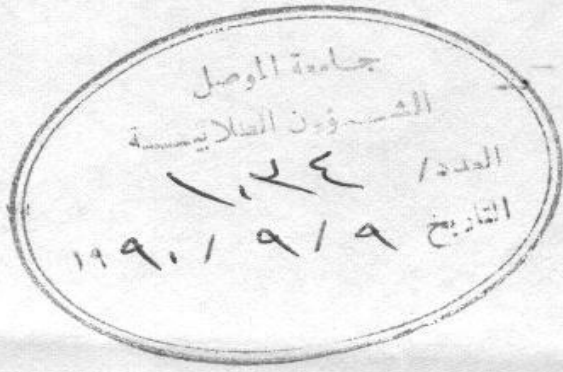 جامعة الموصل
الشـؤون الطلابيـة
العدد / ١٠٣٤
التاريخ ٩ / ٩ / ١٩٩٠